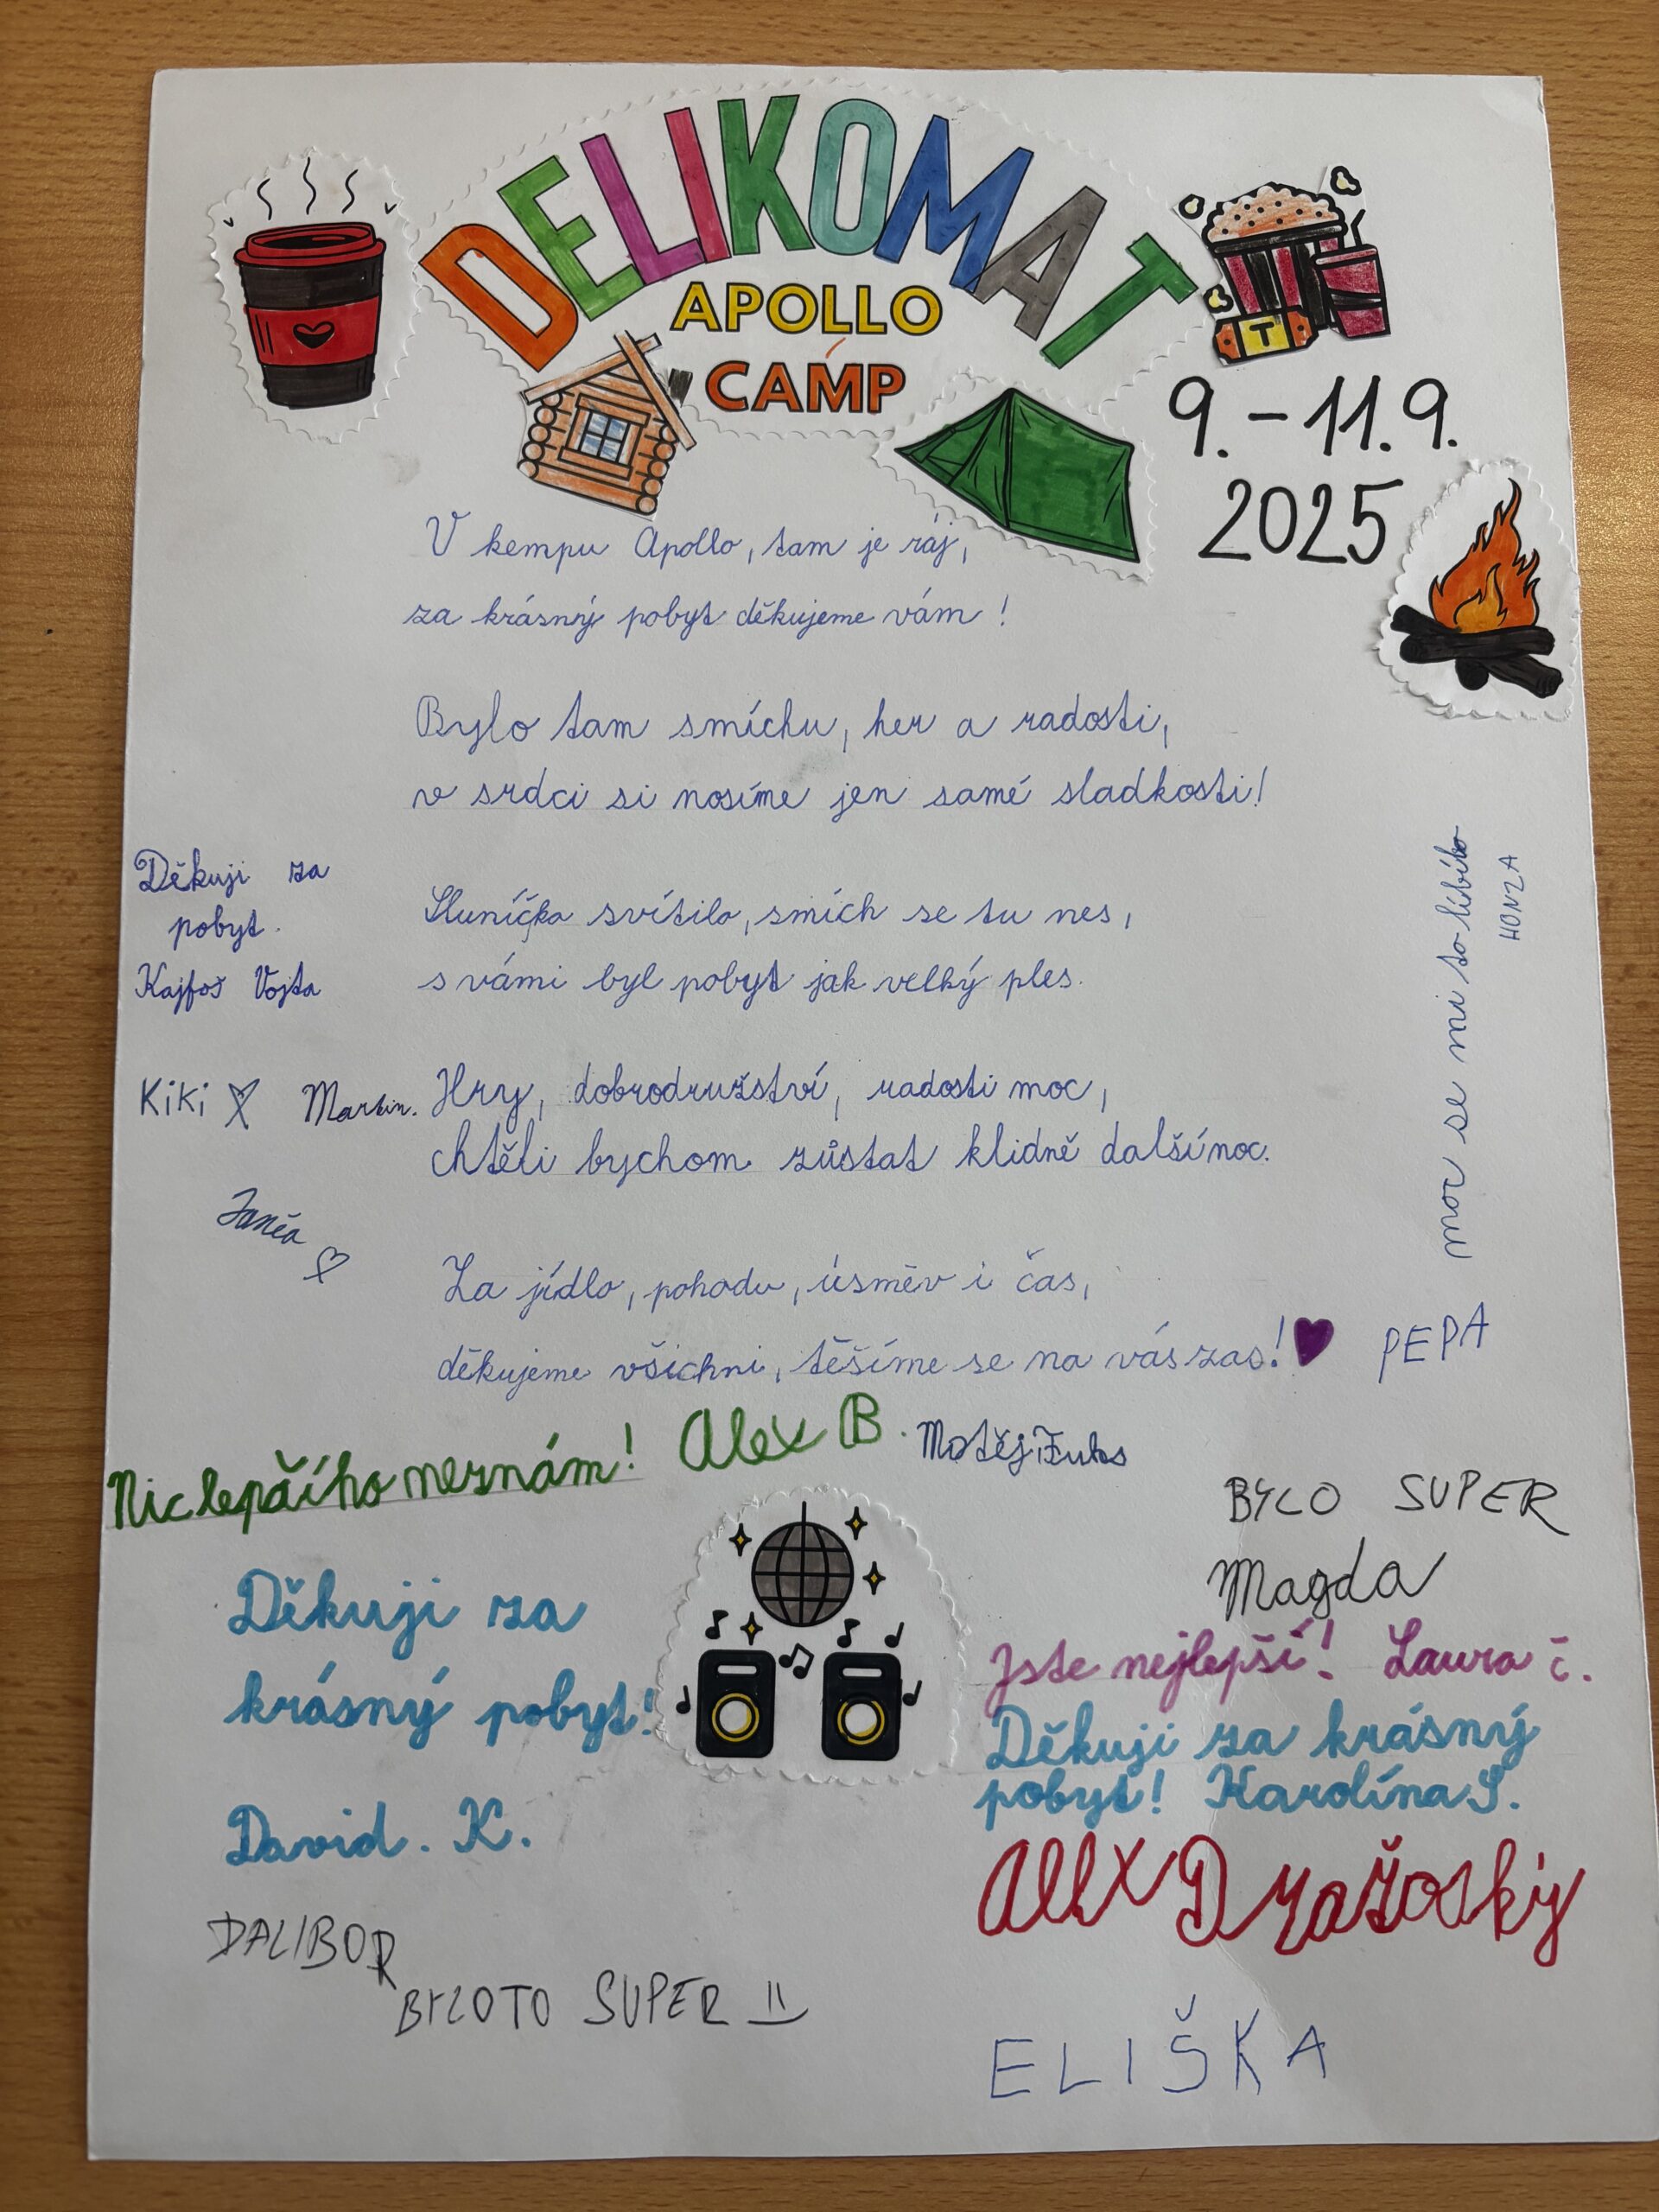 DELIKOMAT
APOLLO
CAMP
T
9.-11.9.
2025
V kempu Apollo, tam je ráj,
za krásný pobyt děkujeme vám!
Bylo tam smíchu, her a radosti,
v srdci si nosíme jen samé sladkosti!
Sluníčko svítilo, smích se tu nes,
s vámi byl pobyt jak velký ples.
Hry, dobrodružství, radosti moc,
chtěli bychom zůstat klidně další noc.
Za jídlo, pohodu, úsměv i čas,
děkujeme všichni, těšíme se na vás zas!
Děkuji za
pobyt.
Kajfoš Vojta
Kiki
Martin.
moc se mi to líbilo
HONZA
PEPA
Nic lepšího neznám! Alex B.
Matěj Fuks
BYLO SUPER
Magda
Děkuji za
krásný pobyt!
David. K.
Jste nejlepší! Laura č.
Děkuji za krásný
pobyt! Karolína S.
Alex
DALIBOR
BYLO TO SUPER
ELIŠKA